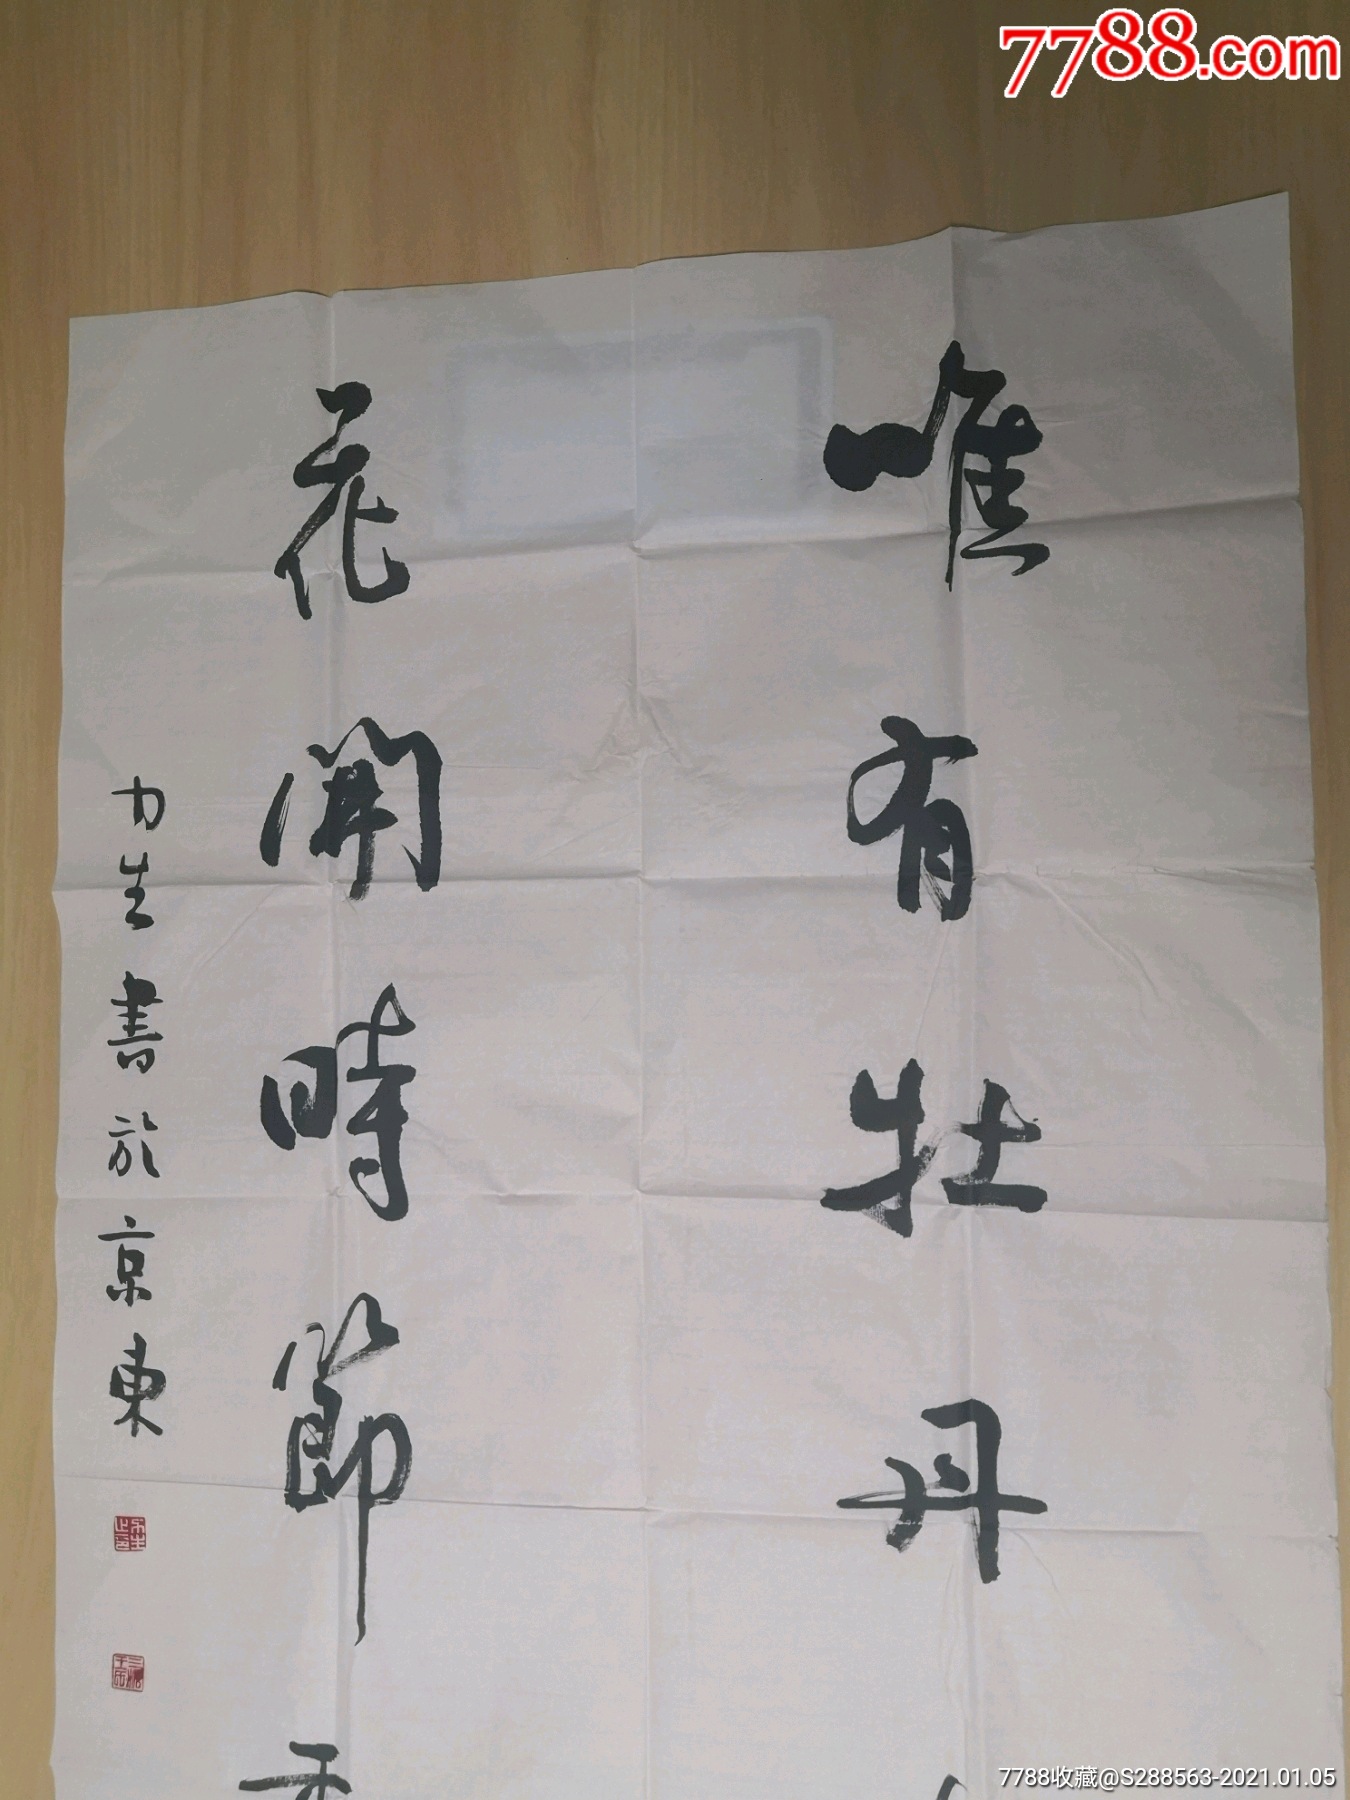 7788.com
唯有牡丹
花開時節
力生書於京東
7788收藏@S288563-2021.01.05